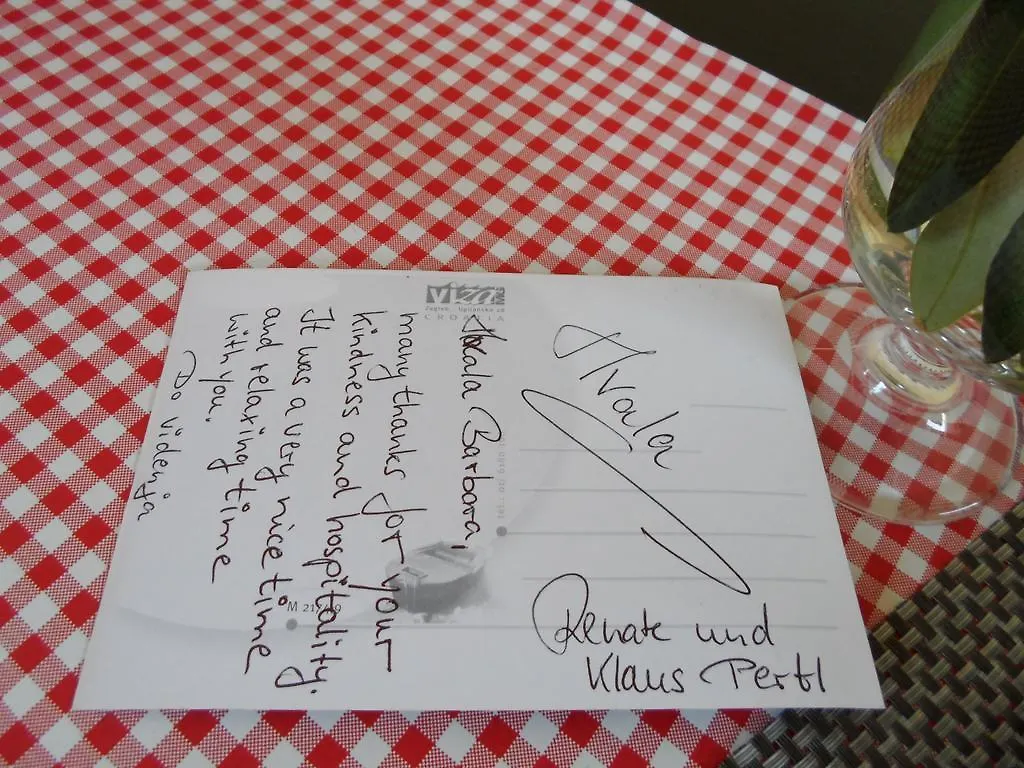 viza
Zagreb,
CROATIA
Hvala Barbara,
many thanks for your
kindness and hospitality.
It was a very nice time
and relaxing time
with you.
Do videnja
Hvala
Renate und
Klaus Pertl